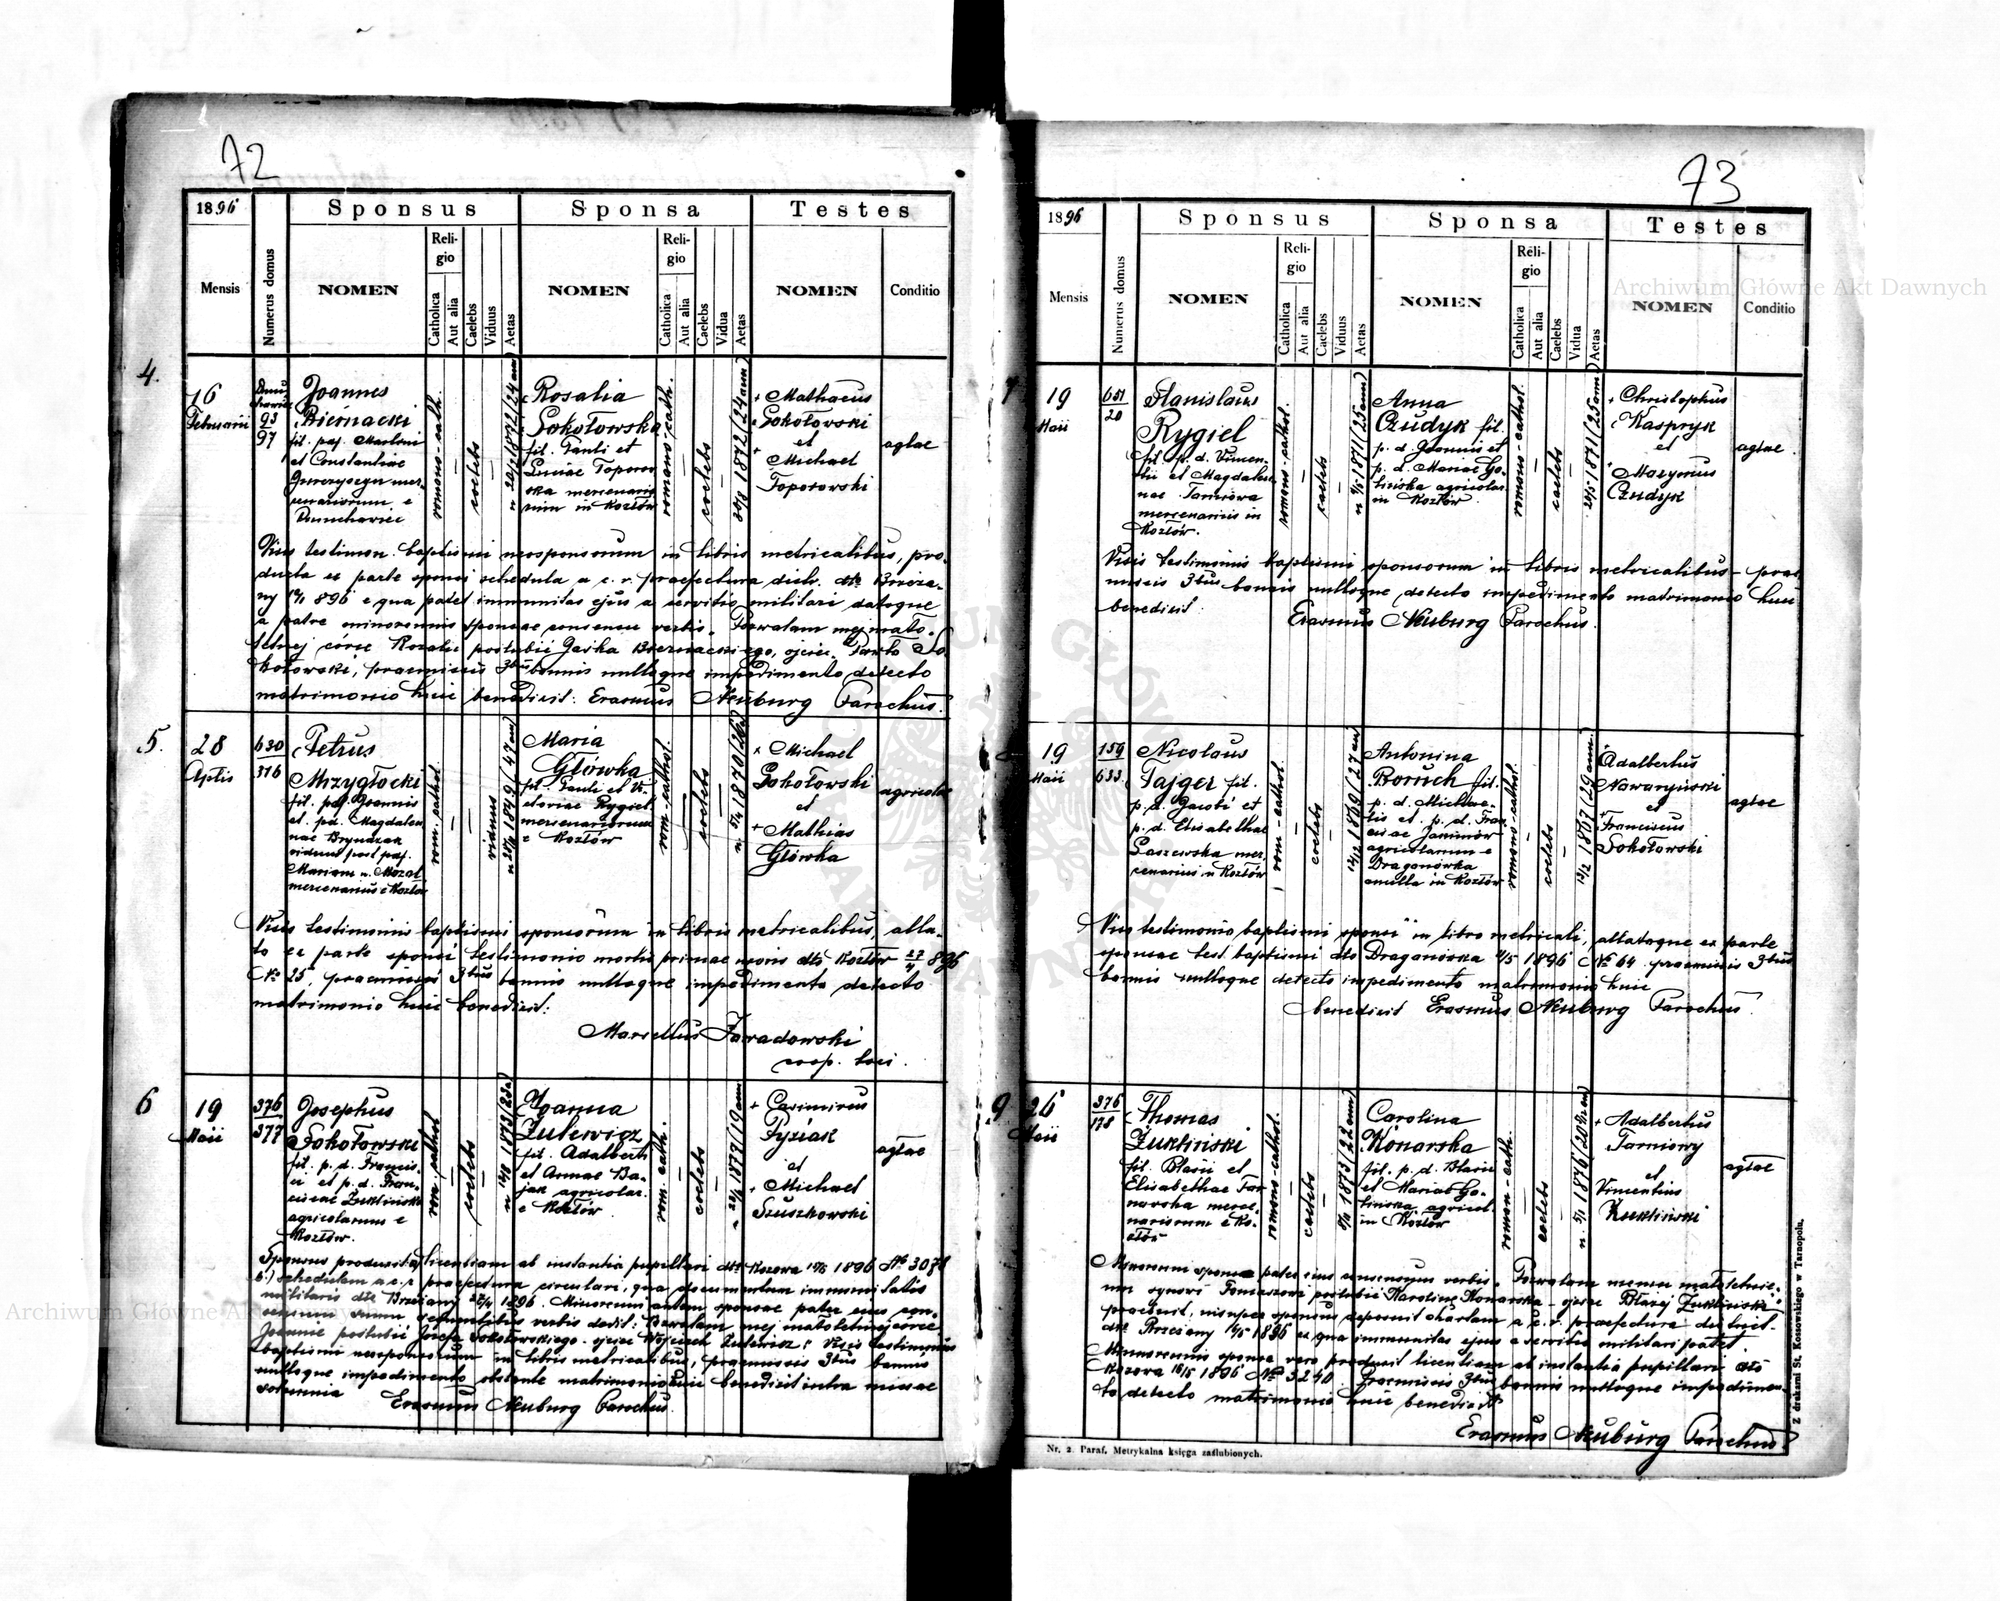 72
1896
Sponsus
Sponsa
Testes
Mensis
Numerus domus
NOMEN
Religio
Catholica
Aut alia
Caelebs
Viduus
Aetas
NOMEN
Religio
Catholica
Aut alia
Caelebs
Vidua
Aetas
NOMEN
Conditio
4.
16
Februarii
93
97
Joannes
Biernacki
fil. paf. Martini
et Constantiae
mer-
cenariorum e
Dmuchawiec
romano-cath.
coelebs
Rosalia
Sokołowska
fil. Pauli et
Luciae Toporo-
ska mercenario-
rum in Kozłów
romano-cath.
coelebs
+ Mathaeus
Sokołowski
et
+ Michael
Toporowski
agtae
Visis testimon. baptismi neosponsorum in libris metricalibus, pro-
ducta ex parte sponsi schedula a c. r. praefectura distr. dto Brzeża-
ny 896 e qua patet immunitas ejus a servitio militari datoque
a patre minorennis sponsae consensu verbis. Pozwalam mej mało-
letniej córce Rozalii poślubić Jaśka Biernackiego, ojciec Pawło So-
kołowski, praemissis 3bus bannis nulloque impedimento detecto
matrimonio huic benedixit: Erasmus Neuburg Parochus.
5.
28
Aplis
630
316
Petrus
Mrzygłocki
fil. paf. Joannis
et paf. Magdalen
nae Bryndzak
viduus post paf.
Mariam n. Mozol
mercenarius e Kozłów
rom. cathol.
viduus
Maria
Główka
fil. Pauli et Vi-
ctoriae Rygiel
mercenariorum
e Kozłów
rom. cathol.
coelebs
+ Michael
Sokołowski
et
+ Mathias
Główka
agricolae
Visis testimoniis baptismi sponsorum in libris metricalibus, alla-
to ex parte sponsi testimonio mortis primae uxoris dto Kozłów 27/4 896
No 25, praemissis 3bus bannis nulloque impedimento detecto
matrimonio huic benedixit:
Marcellus Zawadowski
coop. loci.
6
19
Maii
376
377
Josephus
Sokołowski
fil. p. d. Francis-
ci et p. d. Fran-
ciscae Zukliński
agricolarum e
Kozłów.
rom. cathol
coelebs
Joanna
Zulewicz
fil. Adalberti
et Annae Ba-
jak agricolar.
e Kozłów
rom. cath.
coelebs
+ Casimirus
Pyziak
et
+ Michael
Szuszkowski
agtae
Sponsus produxit a) licentiam ab instantia pupillari dto Kozowa 1896 No 3078
b.) schedulam a c. r. praefectura circulari, qua documentum immunitatis
militaris dto Brzeżany 1896. Minorenni autem sponsae pater ejus con-
sensum suum sequentibus verbis dedit: Pozwalam mej małoletniej córce
Joannie poślubić Józefa Sokołowskiego. ojciec Wojciech Zulewicz; Visis testimoniis
baptismi neosponsorum in libris metricalibus, praemissis 3bus bannis
nulloque impedimento obstante matrimonio huic benedixit intra missae
solemnia Erasmus Neuburg Parochus.
73
1896
Sponsus
Sponsa
Testes
Mensis
Numerus domus
NOMEN
Religio
Catholica
Aut alia
Caelebs
Viduus
Aetas
NOMEN
Religio
Catholica
Aut alia
Caelebs
Vidua
Aetas
NOMEN
Conditio
7
19
Maii
651
20
Stanislaus
Rygiel
fil. p. d. Vincen-
tii et Magdale-
nae Tarnowa
mercenariis in
Kozłów.
romano-cathol.
coelebs
Anna
Czudyk fil.
p. d. Joannis et
p. d. Mariae Go-
lińska agricolar.
in Kozłów
romano-cathol.
coelebs
+ Christophus
Kaspryk
et
+ Martinus
Czudyk
agtae.
Visis testimoniis baptismi sponsorum in libris metricalibus prae-
missis 3bus bannis nulloque detecto impedimento matrimonio huic
benedixit:
Erasmus Neuburg Parochus.
19
Maii
159
633
Nicolaus
Fajger fil.
p. d. Jacobi et
p. d. Elisabethae
Saszewska mer-
cenarius n Kozłów
rom-cathol.
coelebs
Antonina
Boruch fil.
p. d. Michae-
lis et p. d. Fran-
ciscae Janimów
agricolarum e
Draganówka
ancilla in Kozłów
romano-cathol.
coelebs
Adalbertus
et
+ Franciscus
Sokołowski
agtae
Viso testimonio baptismi sponsi in libro metricali, allatoque ex parte
sponsae test. baptismi dto Draganówka 1896 No 64 praemissis 3bus
bannis nulloque detecto impedimento matrimonio huic
benedixit Erasmus Neuburg Parochus.
9
26
Maii
376
178
Thomas
Zukliński
fil. Blasii et
Elisabethae Tar
nawska merce-
nariorum e Ko-
złów
romano-cathol.
coelebs
Carolina
Konarska
fil. p. d. Blasii
et Mariae Go-
lińska agricol.
in Kozłów
roman-cath.
coelebs
+ Adalbertus
Tarnowy
et
Vincentius
Zukliński
agtae
Minorenni sponso pater ejus consensum verbis. Pozwalam memu małoletnie-
mu synowi Tomaszowi poślubić Karolinę Konarską ojciec Błażej Zukliński
praebuit, insuper sponsus deposuit chartam a c. r. praefectura district.
dto Brzeżany 1896 ex qua immunitas ejus a servitio militari patet.
Minorennis sponsa vero produxit licentiam ab instantia pupillari dto
Kozowa 16/5 1896 No 3240. Praemissis 3bus bannis nulloque impedimen-
to detecto matrimonio huic benedixit
Erasmus Neuburg Parochus
Nr. 2. Paraf. Metrykalna księga zaślubionych.
Z drukarni St. Kossowskiego w Tarnopolu.
Archiwum Główne Akt Dawnych
Archiwum Główne Akt Dawnych